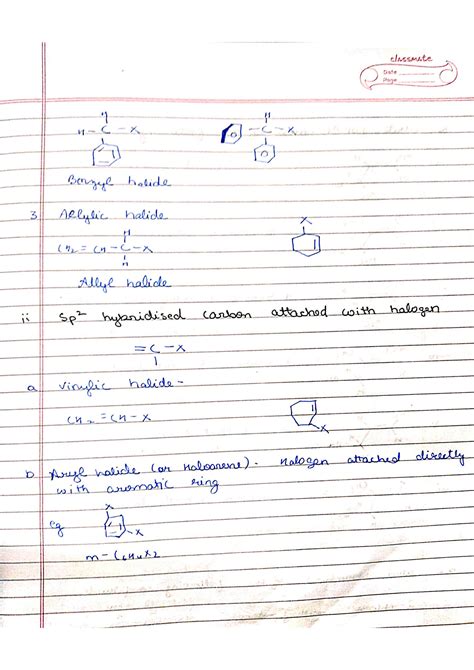 classmate
Date
Page
H H
H - C - X - C - X
Benzyl halide
3. Allylic halide
H X
CH2 = CH - C - X
H
Allyl halide
ii Sp2 hybridised carbon attached with halogen
= C - X
a Vinylic halide -
CH2 = CH - X
X
b Aryl halide (or haloarene) - Halogen attached directly
with aromatic ring
X
eg X
m - C6H4X2